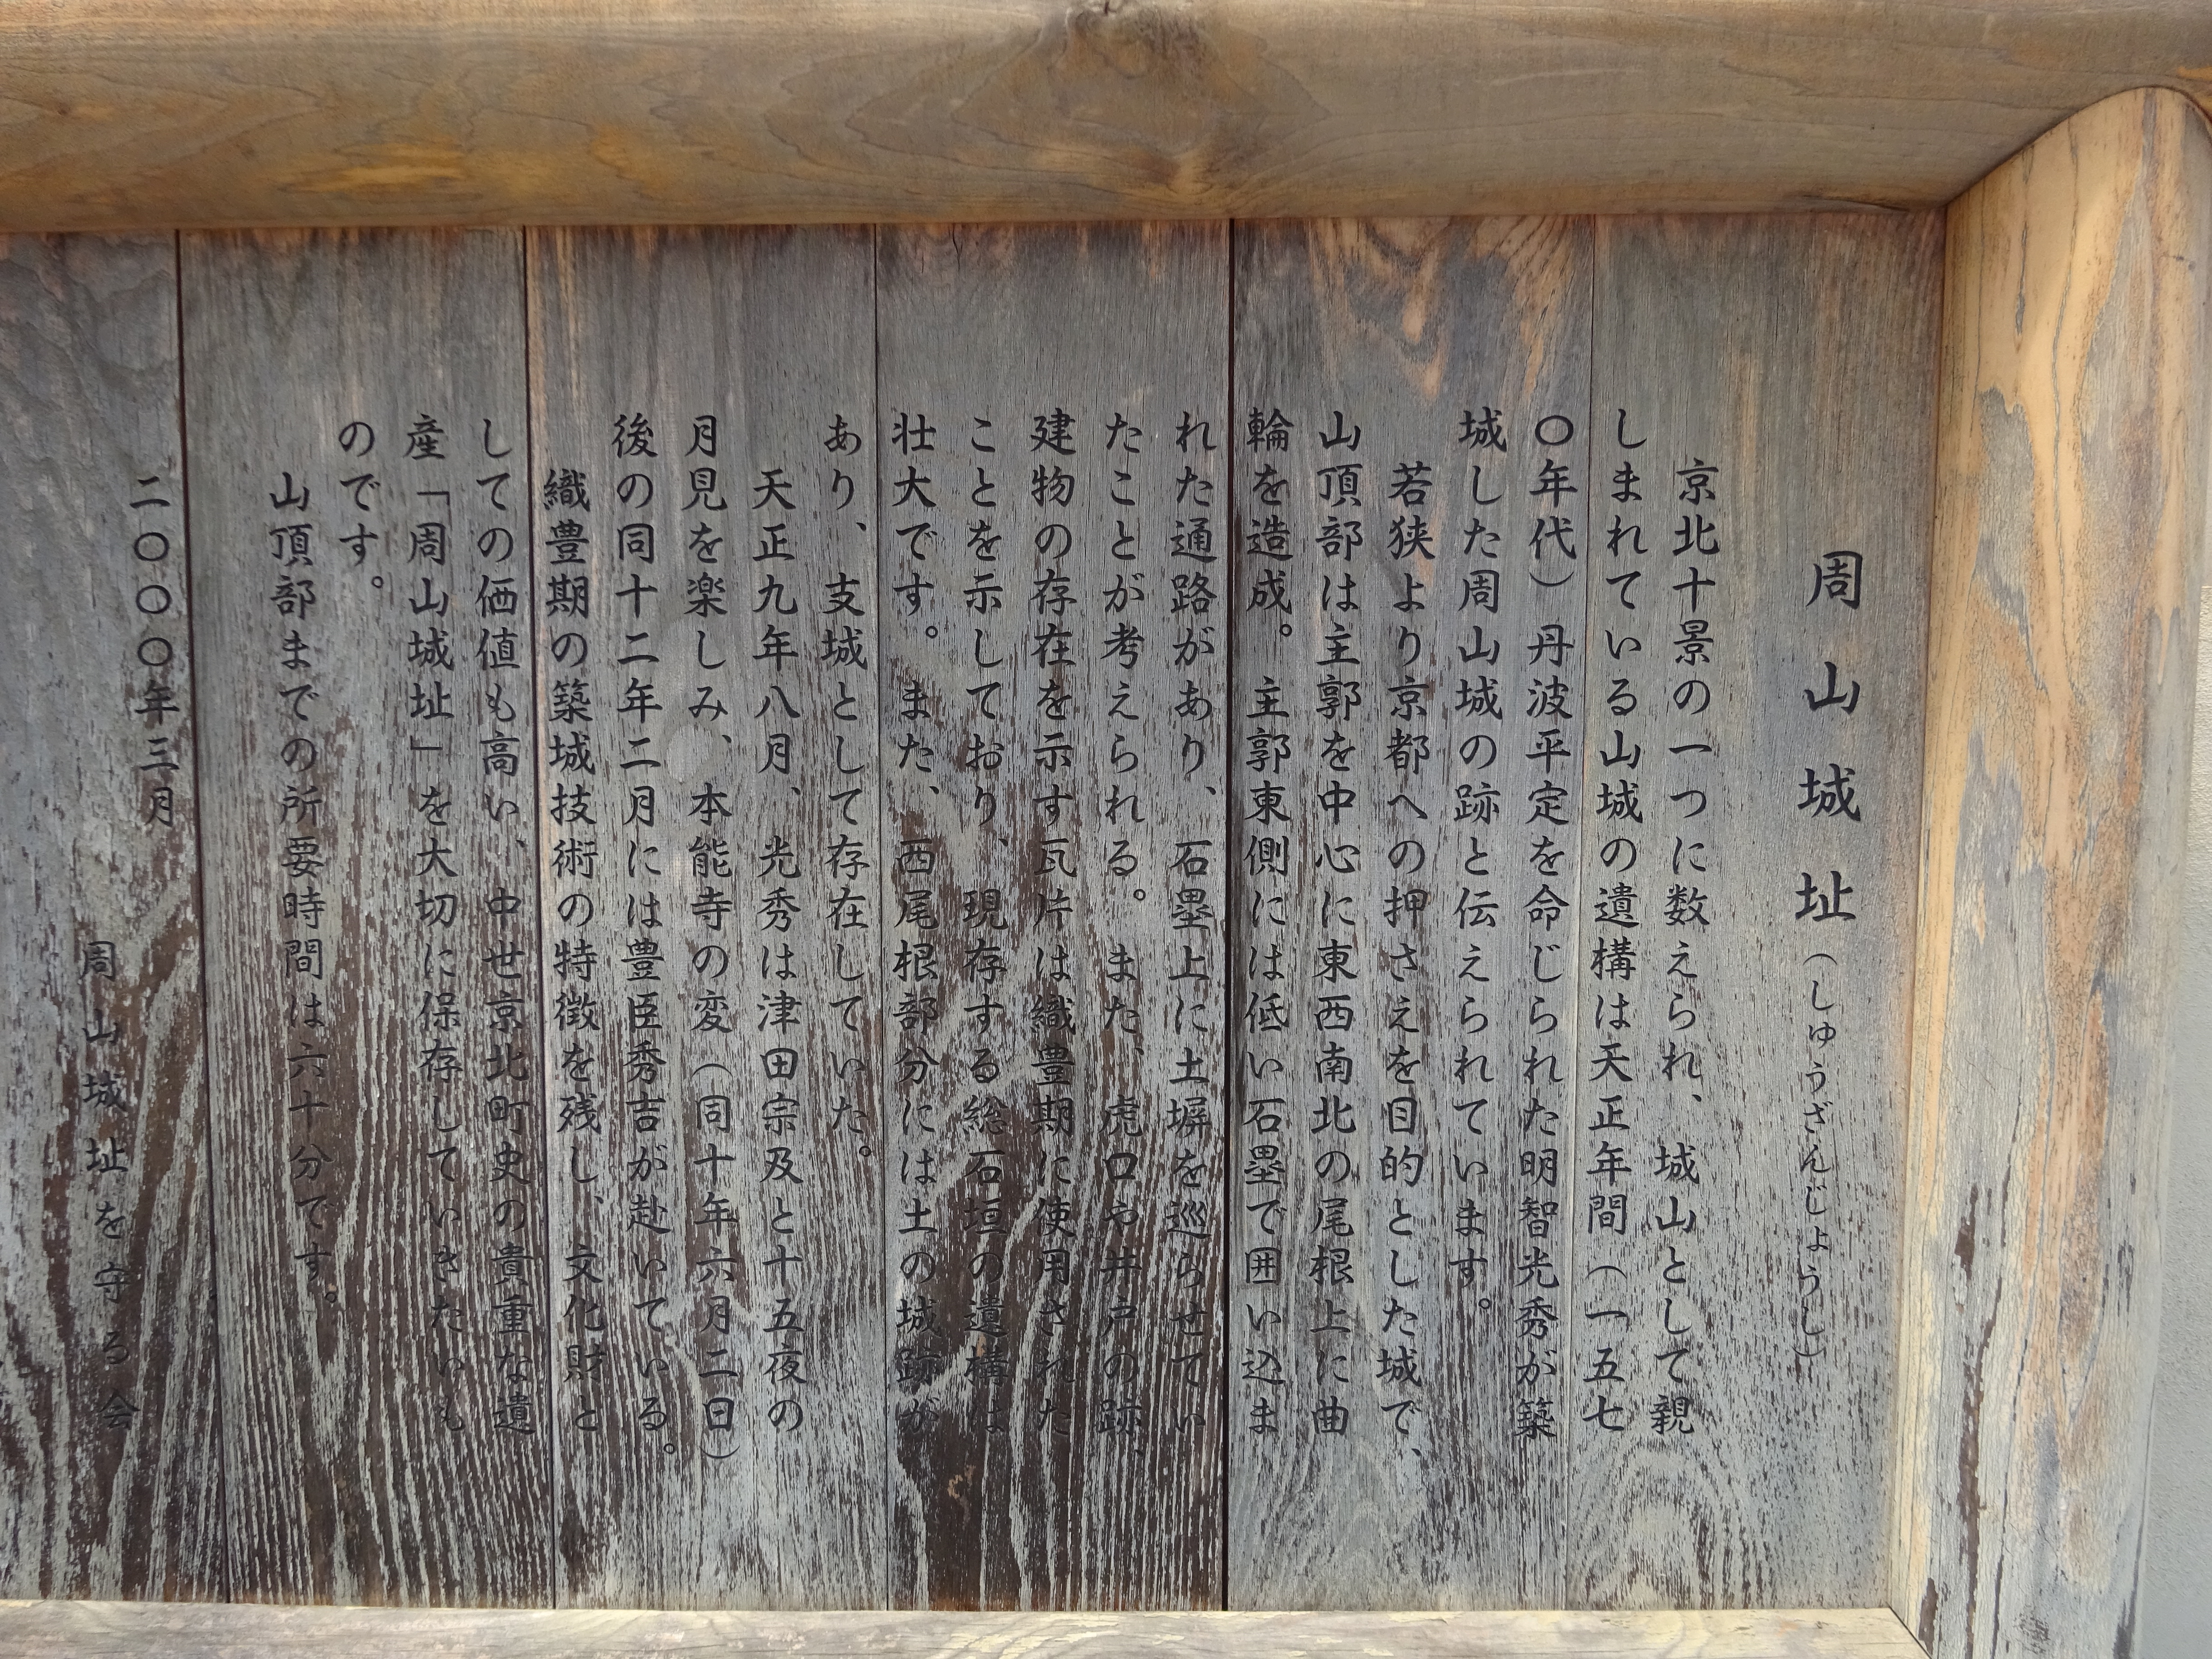 周山城址（しゅうざんじょうし）
京北十景の一つに数えられ、城山として親
しまれている山城の遺構は天正年間（一五七
〇年代）丹波平定を命じられた明智光秀が築
城した周山城の跡と伝えられています。
若狭より京都への押さえを目的とした城で、
山頂部は主郭を中心に東西南北の尾根上に曲
輪を造成。主郭東側には低い石塁で囲い込ま
れた通路があり、石塁上に土塀を巡らせてい
たことが考えられる。また、虎口や井戸の跡、
建物の存在を示す瓦片は織豊期に使用された
ことを示しており、現存する総石垣の遺構は
壮大です。また、西尾根部分には土の城跡が
あり、支城として存在していた。
天正九年八月、光秀は津田宗及と十五夜の
月見を楽しみ、本能寺の変（同十年六月二日）
後の同十二年二月には豊臣秀吉が赴いている。
織豊期の築城技術の特徴を残し、文化財と
しての価値も高い、中世京北町史の貴重な遺
産「周山城址」を大切に保存していきたいも
のです。
山頂部までの所要時間は六十分です。
二〇〇〇年三月
周山城址を守る会